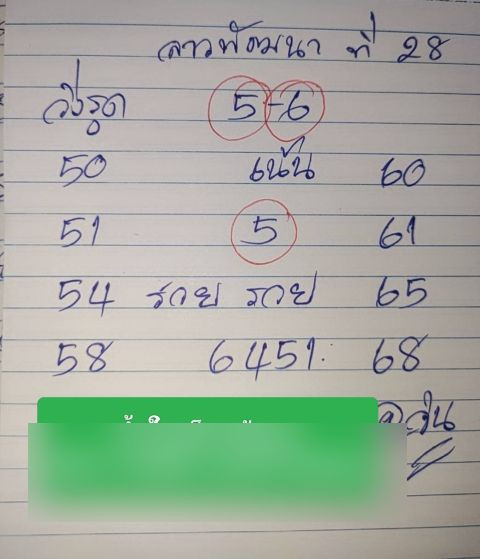 ลาวพัฒนา ที่ 28
วิ่งรูด 5-6
50 เน้น 60
51 5 61
54 รวย รวย 65
58 6451 68